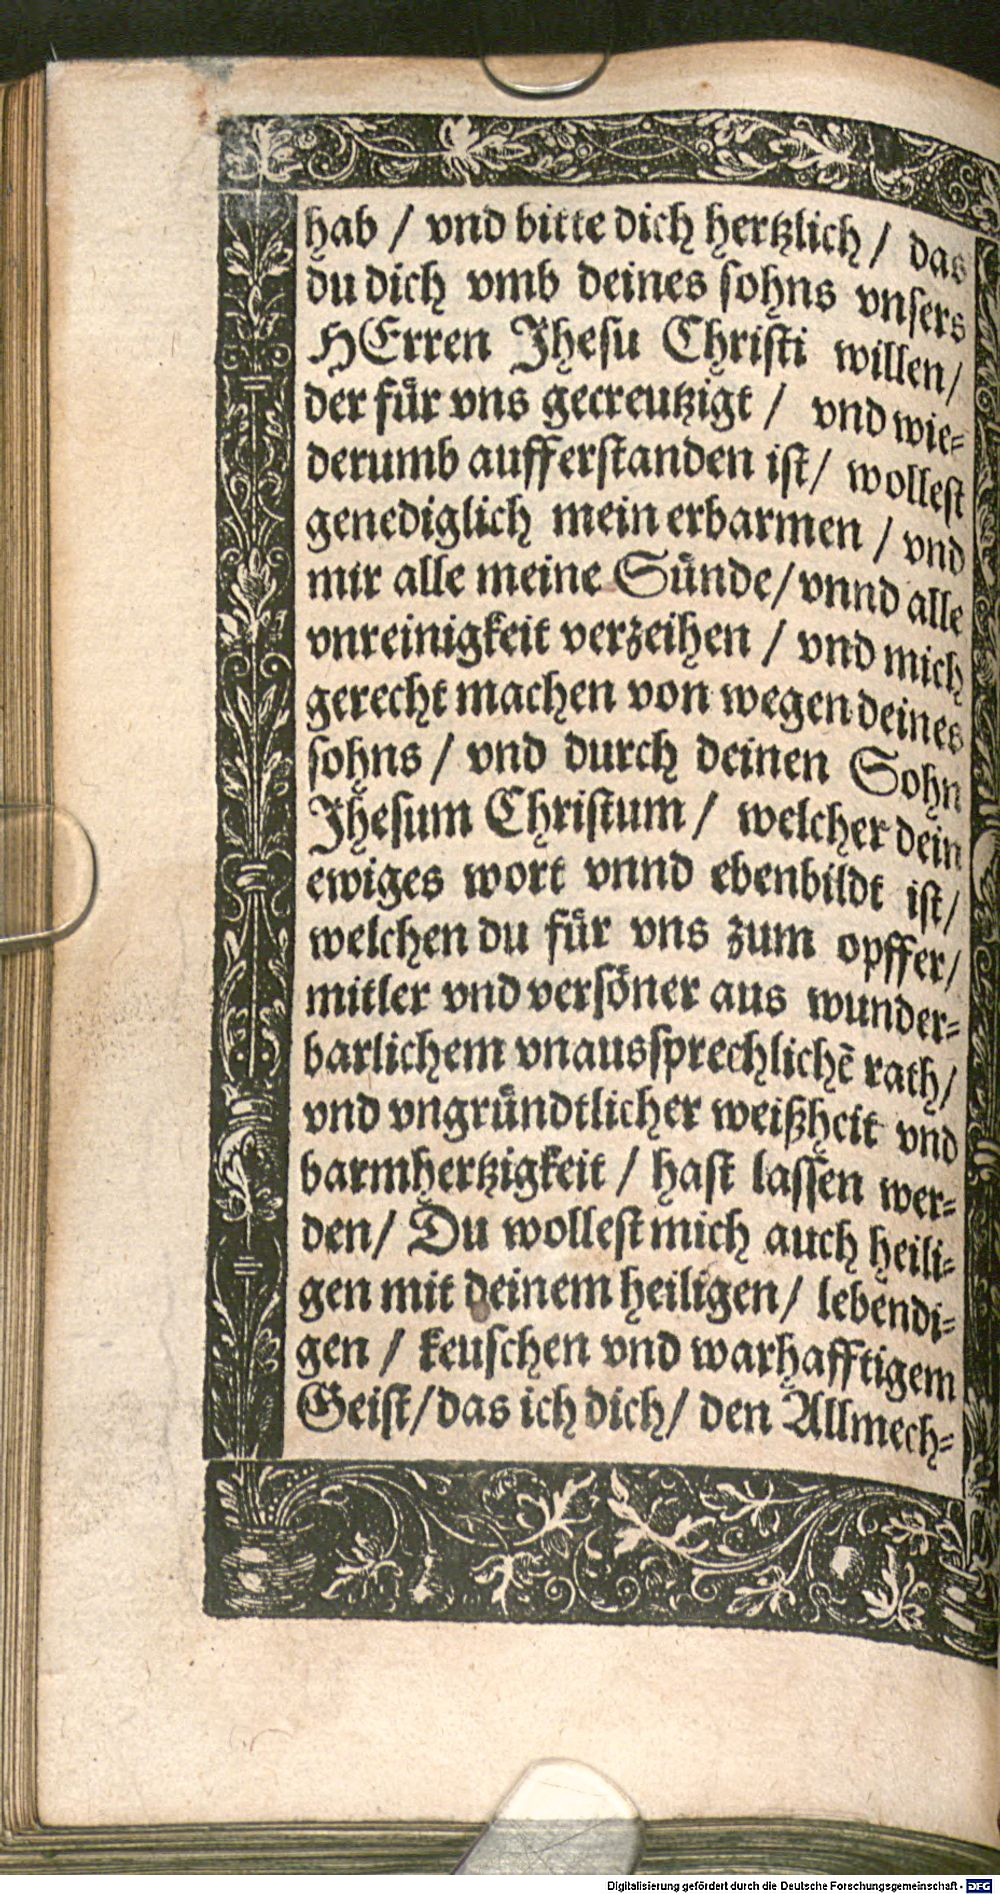 hab / vnd bitte dich hertzlich / das
du dich vmb deines sohns vnsers
HErren Jhesu Christi willen/
der für vns gecreutzigt / vnd wie-
derumb aufferstanden ist/ wollest
genediglich mein erbarmen / vnd
mir alle meine Sünde/ vnnd alle
vnreinigkeit verzeihen / vnd mich
gerecht machen von wegen deines
sohns / vnd durch deinen Sohn
Jhesum Christum / welcher dein
ewiges wort vnnd ebenbildt ist/
welchen du für vns zum opffer/
mitler vnd versöner aus wunder-
barlichem vnaussprechlichē rath/
vnd vngründtlicher weißheit vnd
barmhertzigkeit / hast lassen wer-
den/ Du wollest mich auch heili-
gen mit deinem heiligen/ lebendi-
gen / keuschen vnd warhafftigem
Geist/ das ich dich/ den Allmech-
Digitalisierung gefördert durch die Deutsche Forschungsgemeinschaft - DFG